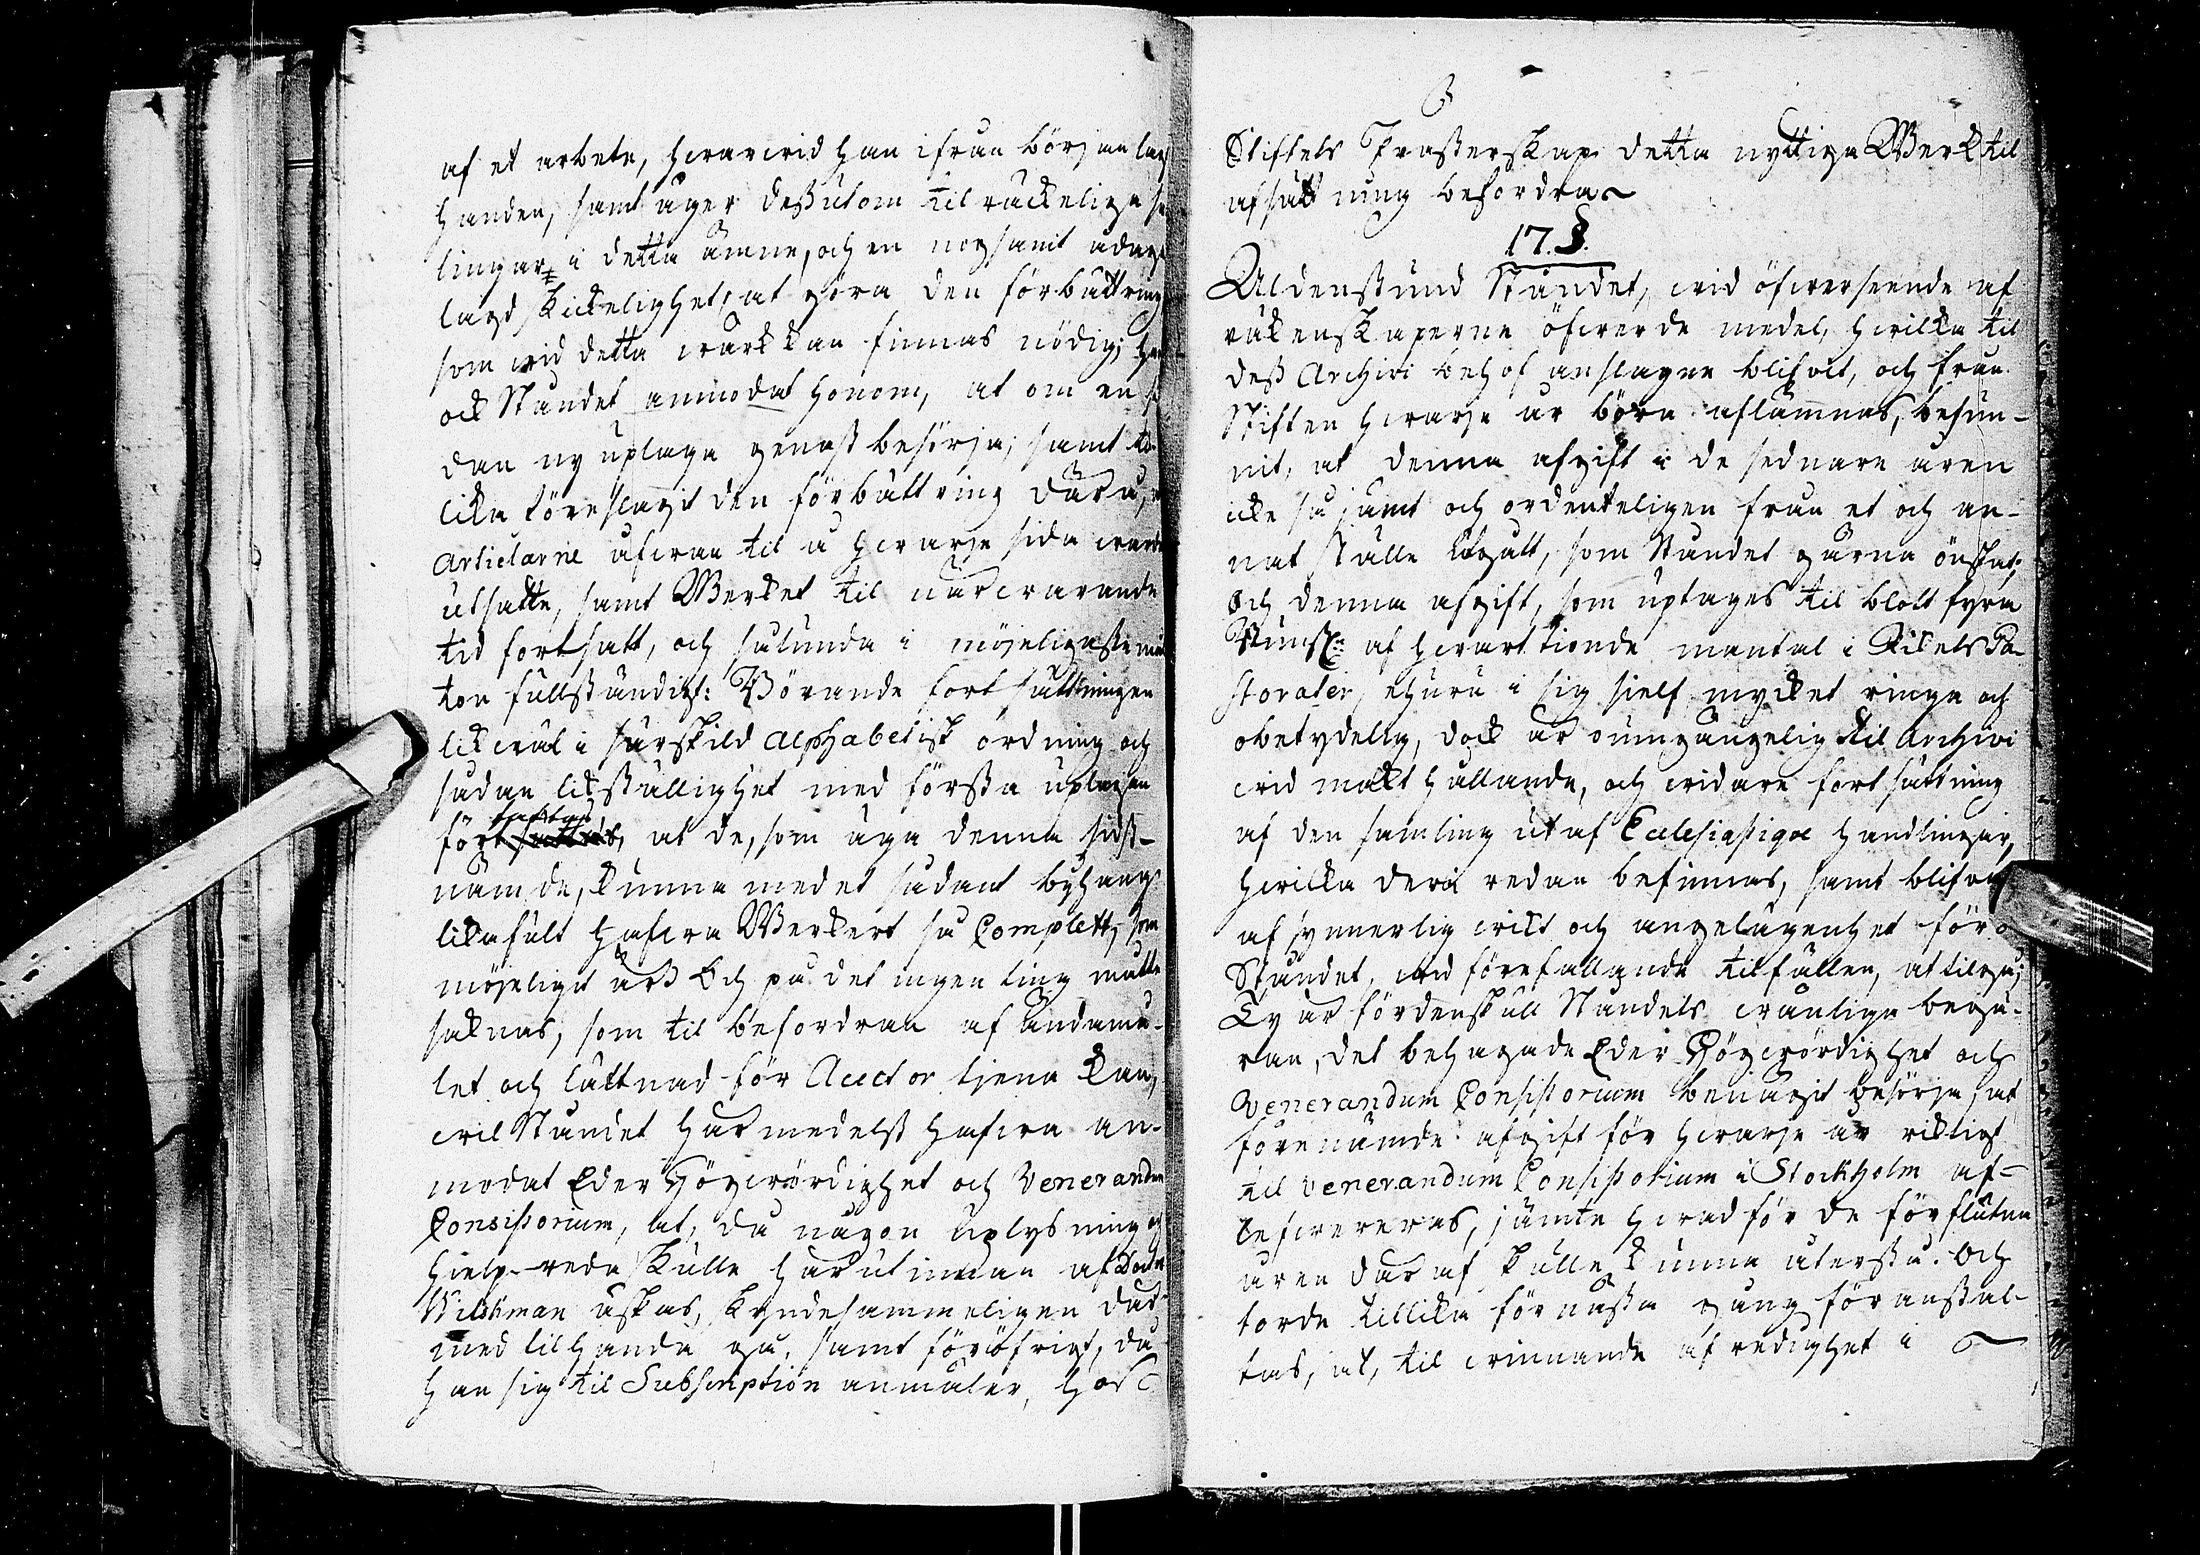 af et arbete, hwarwid han ifrån början lagt
handen, samt äger dessutom tilräckeliga sam
lingar i detta ämne, och en nogsamt ådaga
lagd skickelighet, at göra den förbättring
som wid detta wärk kan finnas nödig; har
ock Ståndet anmodat honom, at om en så
dan ny uplaga genast besörja; samt til
lika föreslagit den förbättring däri, at
Articlarne äfwan til å hwarje sida warda
utsatte, samt Werket til närwarande
tid fortsatt, och sålunda i möjeligaste måt
ton fullständigt: Börande fortsättningen
likwäl i särskild Alphabetisk ordning och
sådan likställighet med första uplagan
författas, at de, som äga denna sidst-
nämde, kunna med et sådant byhang
likafult hafwa Werket så Complett, som
möjeligit är. Och på det ingen ting måtte
saknas, som til befordran af ändamå-
let och lättnad för Auctor tjena kan,
wil Ståndet härmedelst hafwa an-
modat Eder Högwördighet och Venerandum
Consistorium, at, då någon uplysning och
hielpreda skulle härutinnan af Doctor
Wilskman äskas, benägsammeligen där-
med tilhanda gå, samt föröfrigt, då
han sig til Subscription anmäler, hos
Stiftets Prästerskap detta nyttiga Werk til
afsättning befordra
17. §.
Aldenstund Ståndet, wid öfwerseende af
räkenskaperne öfwer de medel, hwilka til
dess Archivi behof anslagne blifvit, och från
Stiften hwarje år böra aflämnas, befun-
nit, at denna afgift i de sednare åren
icke så jämt och ordenteligen från et och an-
nat ställe utgått, som Ståndet gärna önskat;
Och denna afgift, som uptages til blott fyra
Runst:n af hwart tionde mantal i Rikets Pa-
storater, ehuru i sig sielf mycket ringa och
obetydelig, dock är oumgängelig til Archivi
wid makt hållande, och widare fortsättning
af den samling utaf Ecclesiastique handlingar,
hwilka deri redan befinnas, samt blifva
af synnerlig wikt och angelägenhet för
Ståndet, wid förefallande tilfällen, at tilgå;
Ty är fördenskull Ståndets wänliga begä-
ran, det behagade Eder Högwördighet och
Venerandum Consistorium benägit besörja, at
förenämde afgift för hwarje år riktigt
til Venerandum Consistorium i Stockholm af-
lefwereras, jämte hwad för de förflutna
åren däraf skulle kunna återstå. Och
torde tillika för nästa gång föranstal-
tas, at, til winnande af redighet i